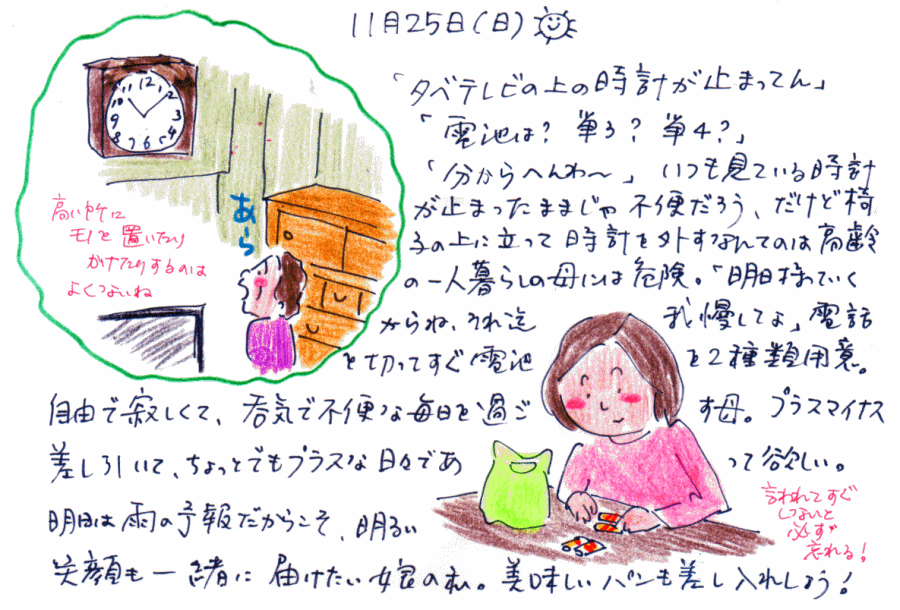 11月25日(日)
「夕べテレビの上の時計が止まってん」
「電池は? 単3? 単4?」
「分からへんわ〜」 いつも見ている時計
が止まったままじゃ不便だろう、だけど椅
子の上に立って時計を外すなんてのは高齢
の一人暮らしの母には危険。「明日持っていく
からね、それ迄我慢してよ」電話
を切ってすぐ電池を2種類用意。
自由で寂しくて、呑気で不便な毎日を過ごす母。プラスマイナス
差し引いて、ちょっとでもプラスな日々であって欲しい。
明日は雨の予報だからこそ、明るい
笑顔も一緒に届けたい娘の私。美味しいパンも差し入れしよう!
12
1
2
3
4
5
6
7
8
9
10
11
あーら
高い所に
モノを置いたり
かけたりするのは
よくないね
言われてすぐ
しないと
必ず
忘れる!